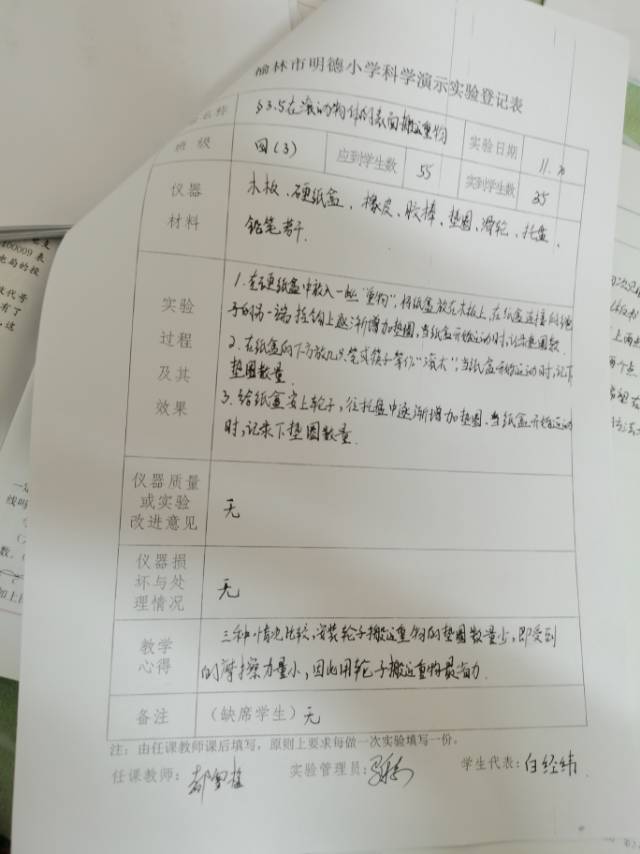 榆林市明德小学科学演示实验登记表
名称 §3.5在滚动物体的表面搬运重物 实验日期 11.
班级 四(3) 应到学生数 55 实到学生数 35
仪器 木板、硬纸盒、橡皮、胶棒、垫圈、滑轮、托盘、
材料 铅笔若干.
实验过程及其效果
1.在硬纸盒中放入一些"重物",将纸盒放在木板上,在纸盒连接的绳
子的另一端挂钩上逐渐增加垫圈,当纸盒开始运动时,记录垫圈数.
2.在纸盒的下方放几只笔或筷子等作"滚木",当纸盒开始运动时,记下
垫圈数量
3.给纸盒安上轮子,往托盘中逐渐增加垫圈,当纸盒开始运动
时,记录下垫圈数量.
仪器质量
或实验 无
改进意见
仪器损
坏与处 无
理情况
教学 三种情况比较,安装轮子搬运重物的垫圈数量少,即受到
心得 的摩擦力量小,因此用轮子搬运重物最省力.
备注 (缺席学生)无
注:由任课教师课后填写,原则上要求每做一次实验填写一份。
任课教师: 实验管理员: 学生代表:白经纬